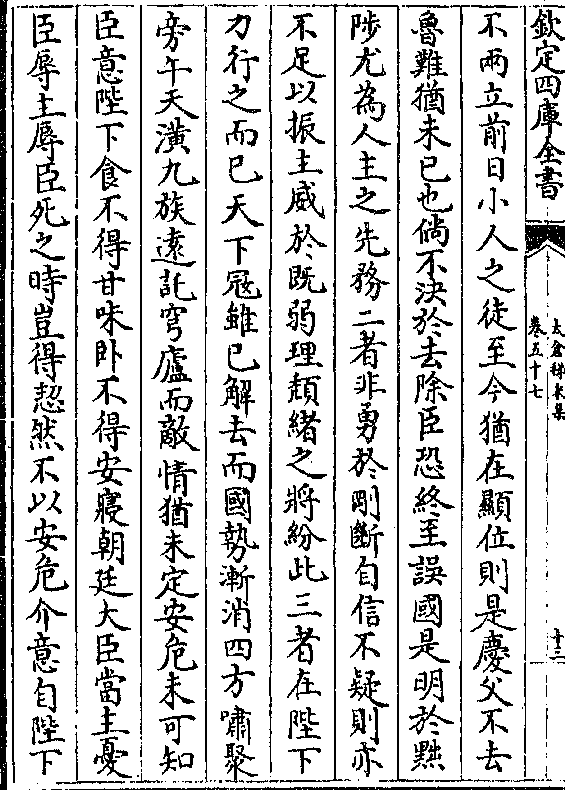 欽定四庫全書
太倉稊米集
卷五十七
十三
不兩立前日小人之徒至今猶在顯位則是慶父不去
魯難猶未已也倘不決於去除臣恐終至誤國是明於黜
陟尤為人主之先務二者非勇於剛斷自信不疑則亦
不足以振主威於既弱理頽緒之將紛此三者在陛下
力行之而已天下冦雖已解去而國勢漸消四方嘯聚
旁午天潢九族逺託穹廬而敵情猶未定安危未可知
臣意陛下食不得甘味卧不得安寢朝廷大臣當主憂
臣辱主辱臣死之時豈得恝然不以安危介意自陛下